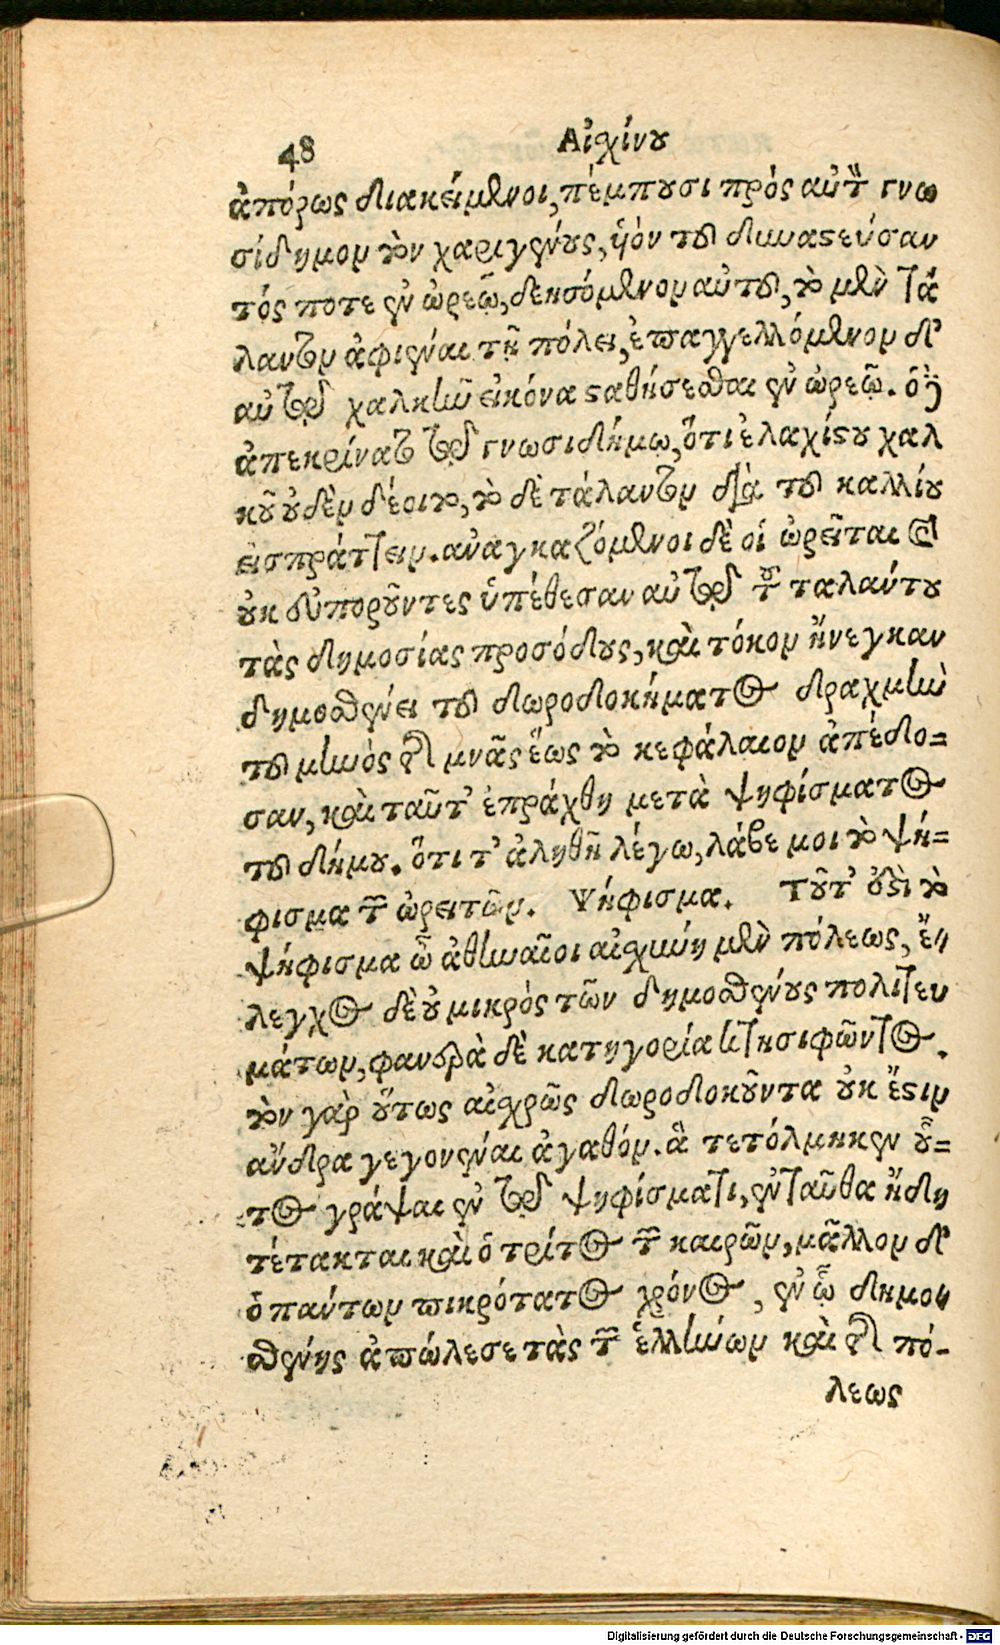 48 Αἰσχίνου
ἀπόρως διακείμενοι, πέμπουσι πρὸς αὐτὸν γνω
σίδημον τὸν χαριγένους, ὑὸν τοῦ δυναστεύσαν
τός ποτε ἐν ὠρεῷ, δεησόμενον αὐτοῦ, τὸ μὲν τά
λαντον ἀφιέναι τῇ πόλει, ἐπαγγελλόμενον δ'
αὐτῷ χαλκῆν εἰκόνα σταθήσεσθαι ἐν ὠρεῷ. ὁ δὲ
ἀπεκρίνατο τῷ γνωσιδήμῳ, ὅτι ἐλαχίστου χαλ
κοῦ οὐδὲν δέοιτο, τὸ δὲ τάλαντον διὰ τοῦ καλλίου
εἰσπράττειν. ἀναγκαζόμενοι δὲ οἱ ὠρεῖται καὶ
οὐκ εὐποροῦντες ὑπέθεσαν αὐτῷ τοῦ ταλάντου
τὰς δημοσίας προσόδους, καὶ τόκον ἤνεγκαν
δημοσθένει τοῦ δωροδοκήματος δραχμὴν
τοῦ μηνὸς τῆς μνᾶς ἕως τὸ κεφάλαιον ἀπέδο=
σαν, καὶ ταῦτ' ἐπράχθη μετὰ ψηφίσματος
τοῦ δήμου. ὅτι τ' ἀληθῆ λέγω, λάβε μοι τὸ ψή=
φισμα τῶν ὠρειτῶν. Ψήφισμα. Τοῦτ' ἐστὶ τὸ
ψήφισμα ὦ ἀθηναῖοι αἰσχύνη μὲν πόλεως, ἔ=
λεγχος δὲ οὐ μικρὸς τῶν δημοσθένους πολιτευ
μάτων, φανερὰ δὲ κατηγορία κτησιφῶντος.
τὸν γὰρ οὕτως αἰσχρῶς δωροδοκοῦντα οὐκ ἔστιν
ἄνδρα γεγονέναι ἀγαθόν. ἃ τετόλμηκεν οὗ=
τος γράψαι ἐν τῷ ψηφίσματι, ἐνταῦθα ἤδη
τέτακται καὶ ὁ τρίτος τῶν καιρῶν, μᾶλλον δ'
ὁ πάντων πικρότατος χρόνος, ἐν ᾧ δημο=
σθένης ἀπώλεσε τὰς τῶν ἑλλήνων καὶ τῆς πό-
λεως
Digitalisierung gefördert durch die Deutsche Forschungsgemeinschaft - DFG